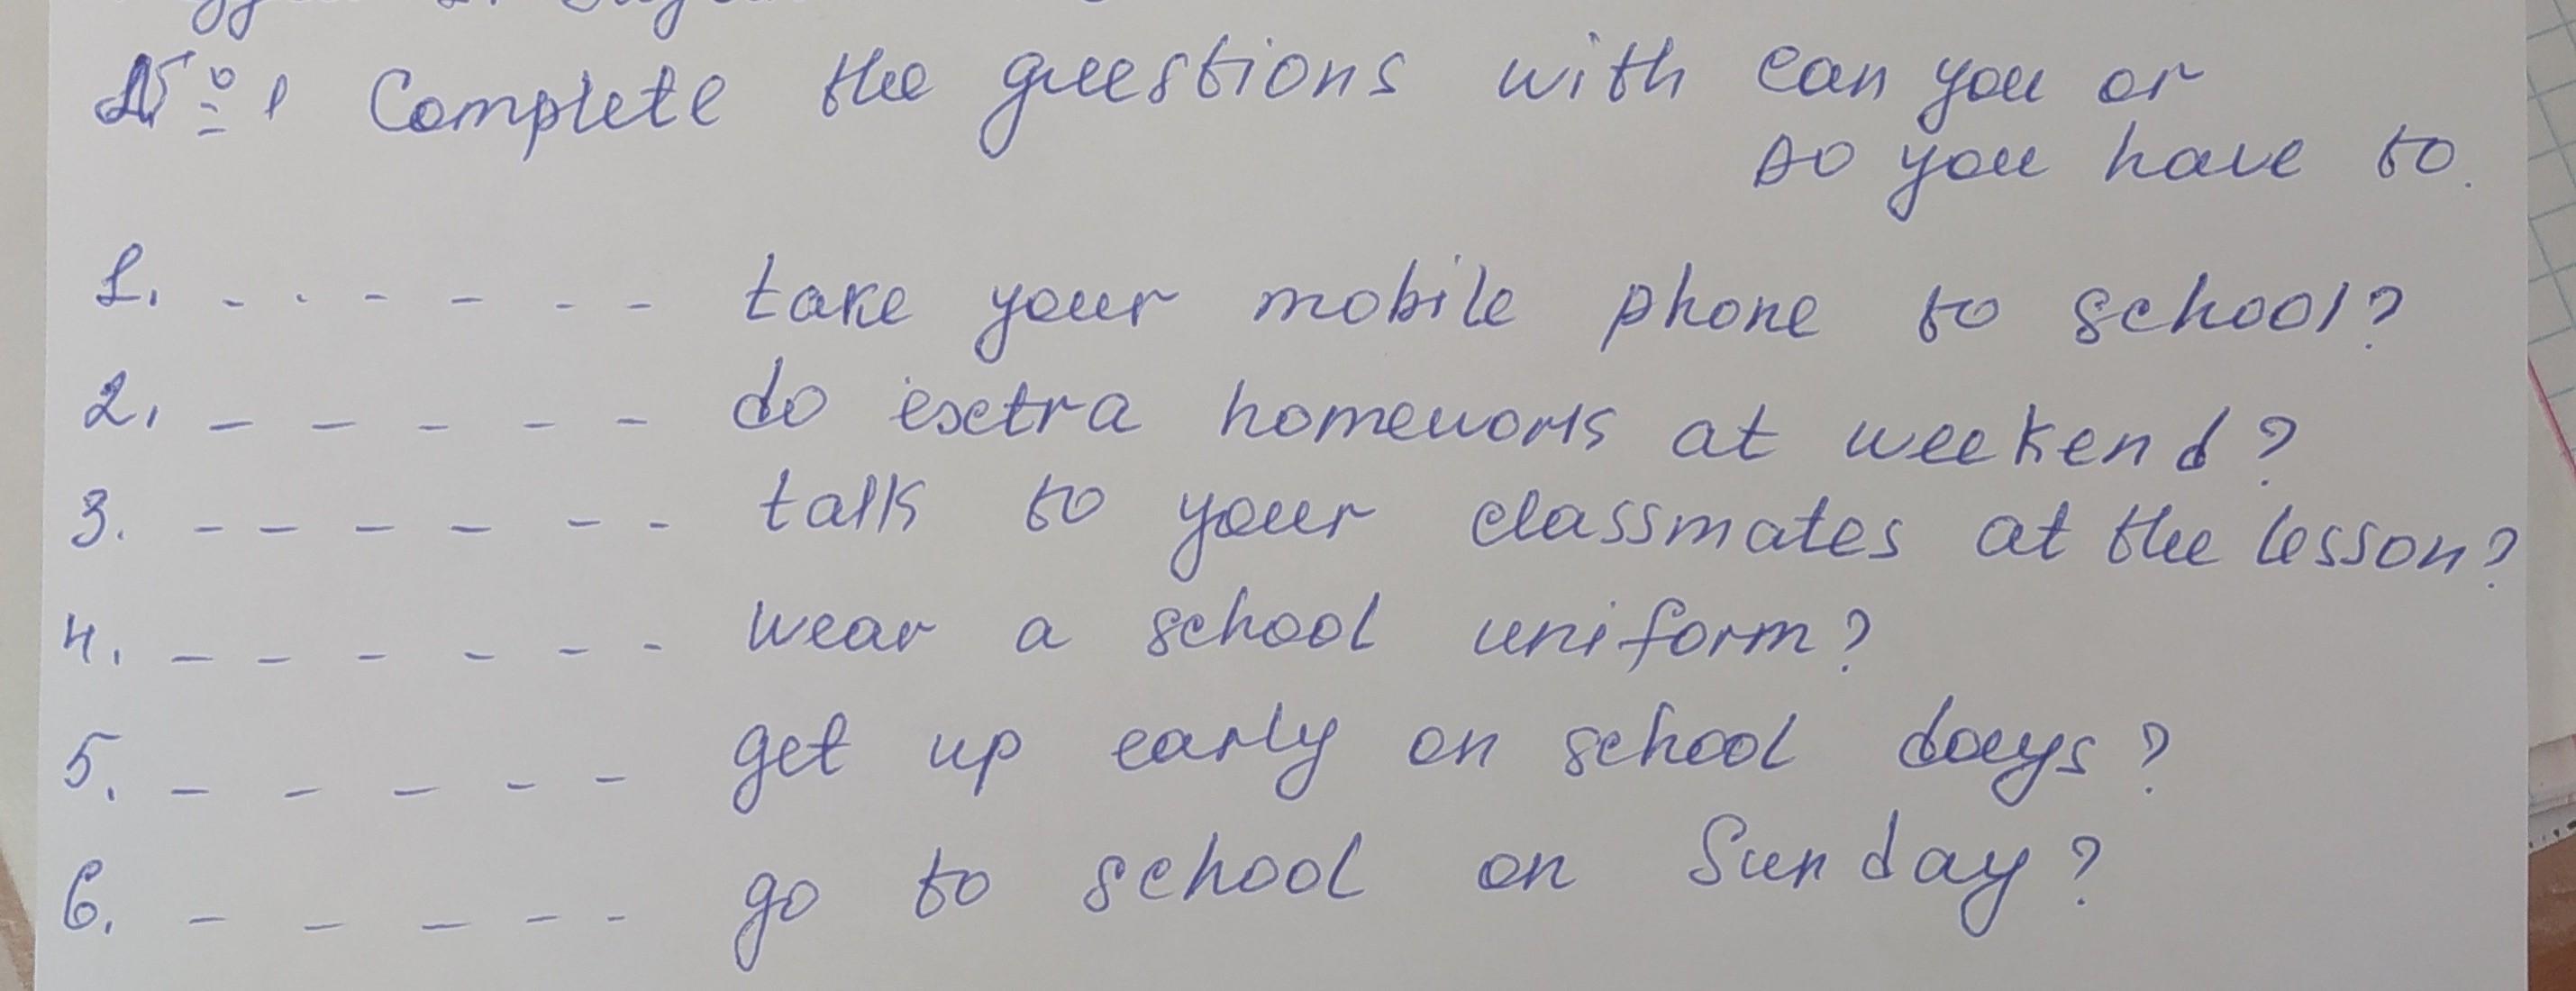 №1 Complete the questions with can you or
do you have to.
1. - - - - - - take your mobile phone to school?
2. - - - - - do extra homework at weekend?
3. - - - - - - talk to your classmates at the lesson?
4. - - - - - - wear a school uniform?
5. - - - - - get up early on school days?
6. - - - - - go to school on Sunday?